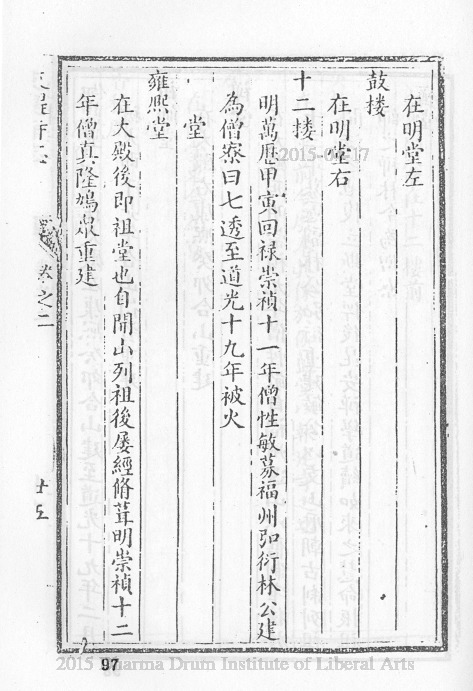 在明堂左
鼓楼
在明堂右
十二楼
明萬曆甲寅回祿崇禎十一年僧性敏募福州弘衍林公建
為僧寮曰七透至道光十九年被火
堂
雍熙堂
在大殿後即祖堂也自開山列祖後屢經脩葺明崇禎十二
年僧真隆鳩泉重建
卷之二
廿五
97
2015-0 17
2015 Dharma Drum Institute of Liberal Arts